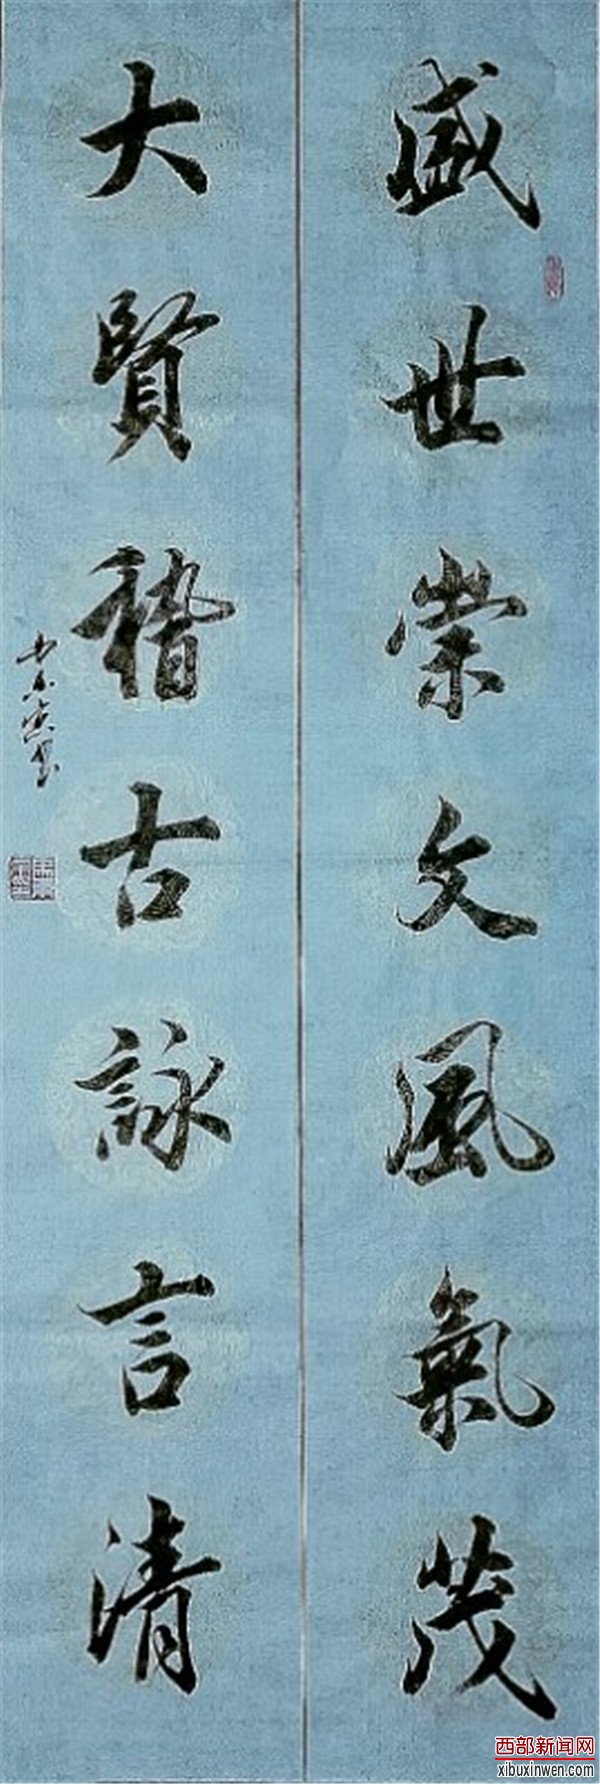 盛世崇文風氣茂
大賢稽古詠言清
西部新闻网
xibuxinwen.com